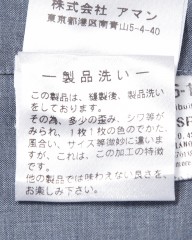 株式会社 アマン
東京都港区南青山5-4-40
― 製品洗い ―
この製品は、縫製後、製品洗い
をしております。
その為、多少の歪み、シワ等が
みられ、1枚1枚の色のでかた、
風合い、サイズ等微妙に違い
ますが、これは、この加工の特徴
です。
他の製品では味わえない良さを、
お楽しみ下さい。